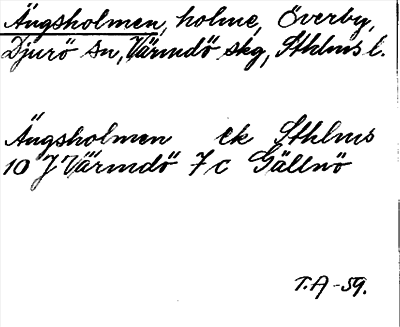 Ängsholmen, holme, Överby,
Djurö sn, Värmdö skg, Sthlms l.
Ängsholmen ek Sthlms
10 J Värmdö 7c Gällnö
T.A -59.